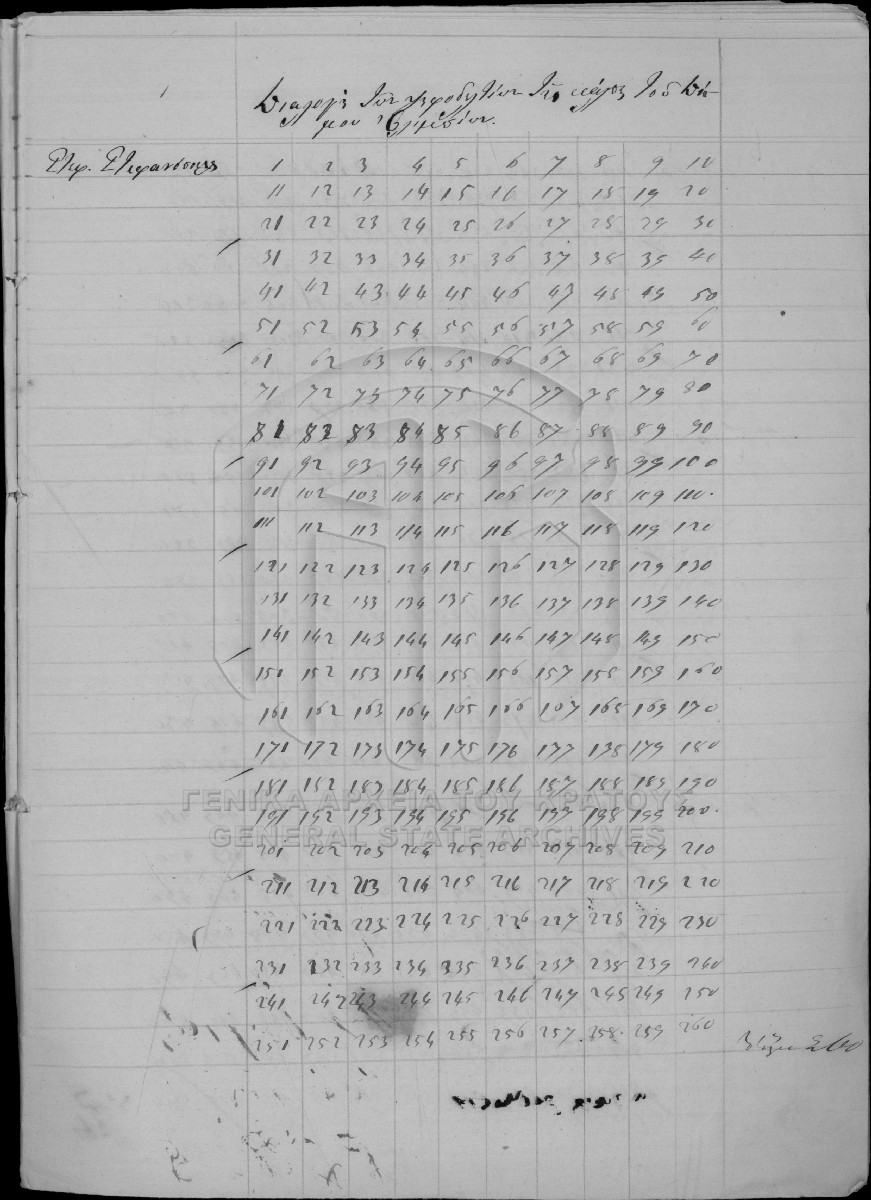 Διαλογὴ τῶν ψηφοδελτίων τῆς κάλπης τοῦ Δή-
μου
Στεφ. 1 2 3 4 5 6 7 8 9 10
11 12 13 14 15 16 17 18 19 20
21 22 23 24 25 26 27 28 29 30
31 32 33 34 35 36 37 38 39 40
41 42 43 44 45 46 47 48 49 50
51 52 53 54 55 56 57 58 59 60
61 62 63 64 65 66 67 68 69 70
71 72 73 74 75 76 77 78 79 80
81 82 83 84 85 86 87 88 89 90
91 92 93 94 95 96 97 98 99 100
101 102 103 104 105 106 107 108 109 110.
111 112 113 114 115 116 117 118 119 120
121 122 123 124 125 126 127 128 129 130
131 132 133 134 135 136 137 138 139 140
141 142 143 144 145 146 147 148 149 150
151 152 153 154 155 156 157 158 159 160
161 162 163 164 165 166 167 168 169 170
171 172 173 174 175 176 177 178 179 180
181 182 183 184 185 186 187 188 189 190
ΓΕΝΙΚΑ ΑΡΧΕΙΑ ΤΟΥ ΚΡΑΤΟΥΣ
191 192 193 194 195 196 197 198 199 200.
GENERAL STATE ARCHIVES
201 202 203 204 205 206 207 208 209 210
211 212 213 214 215 216 217 218 219 220
221 222 223 224 225 226 227 228 229 230
231 232 233 234 235 236 237 238 239 240
241 242 243 244 245 246 247 248 249 250
251 252 253 254 255 256 257 258 259 260